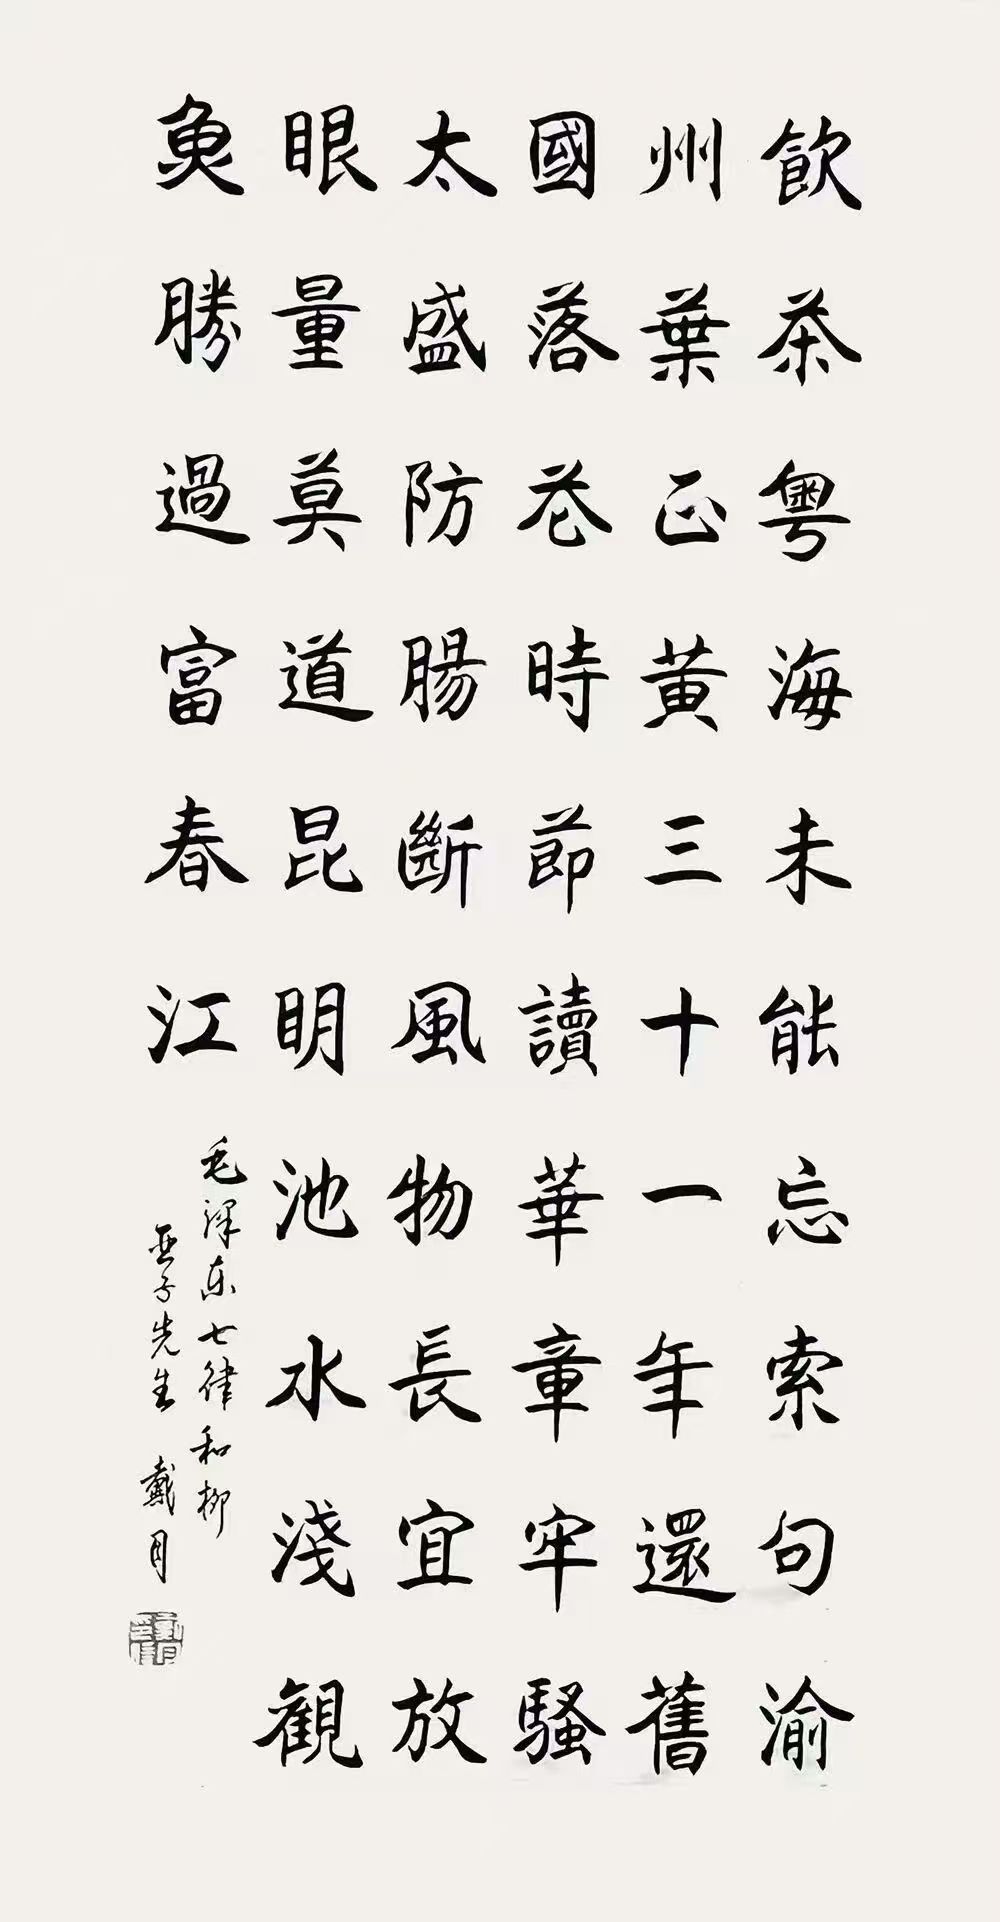 飲茶粵海未能忘索句渝
州葉正黃三十一年還舊
國落花時節讀華章牢騷
太盛防腸斷風物長宜放
眼量莫道昆明池水淺觀
魚勝過富春江
毛澤东七律和柳
亚子先生 戴月